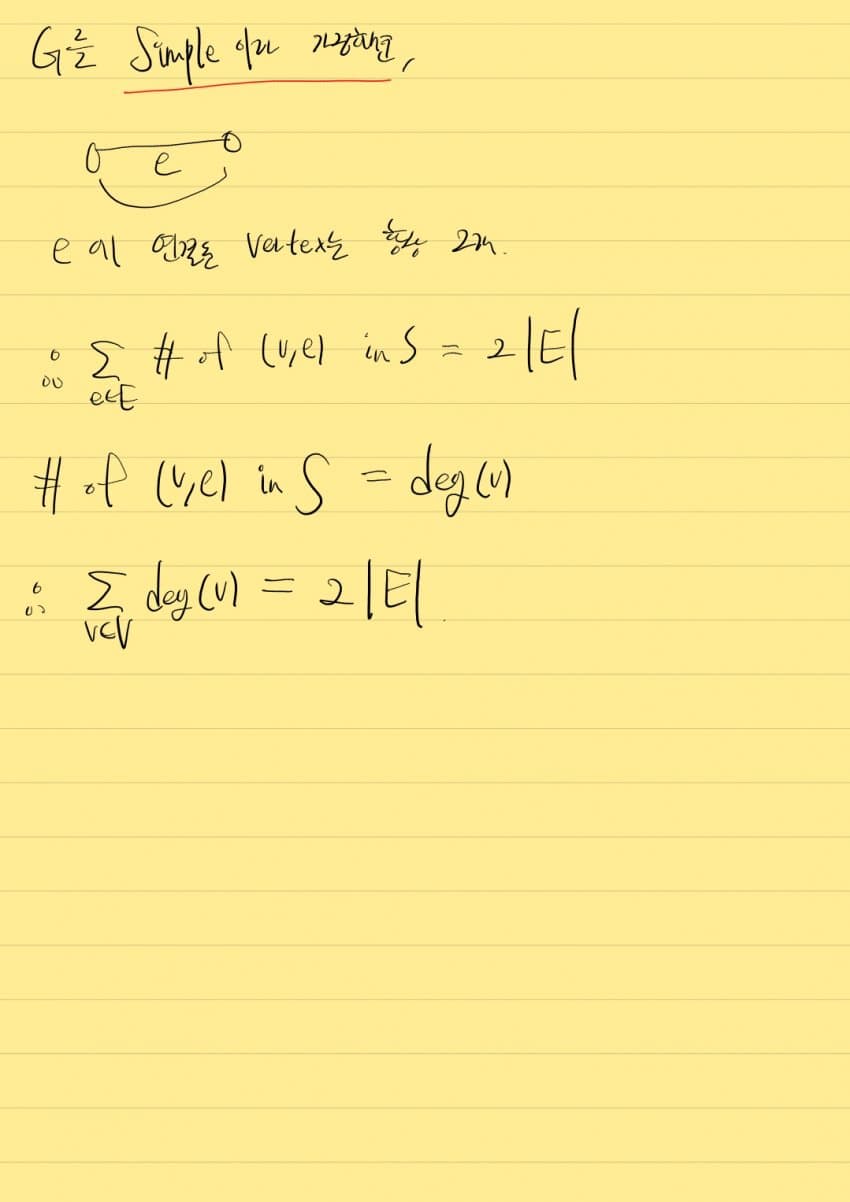 G를 Simple 이라 가정하면,
e
e에 연결된 Vertex는 항상 2개.
∴ Σ # of (v,e) in S = 2|E|
e∈E
# of (v,e) in S = deg(v)
∴ Σ deg(v) = 2|E|.
v∈V